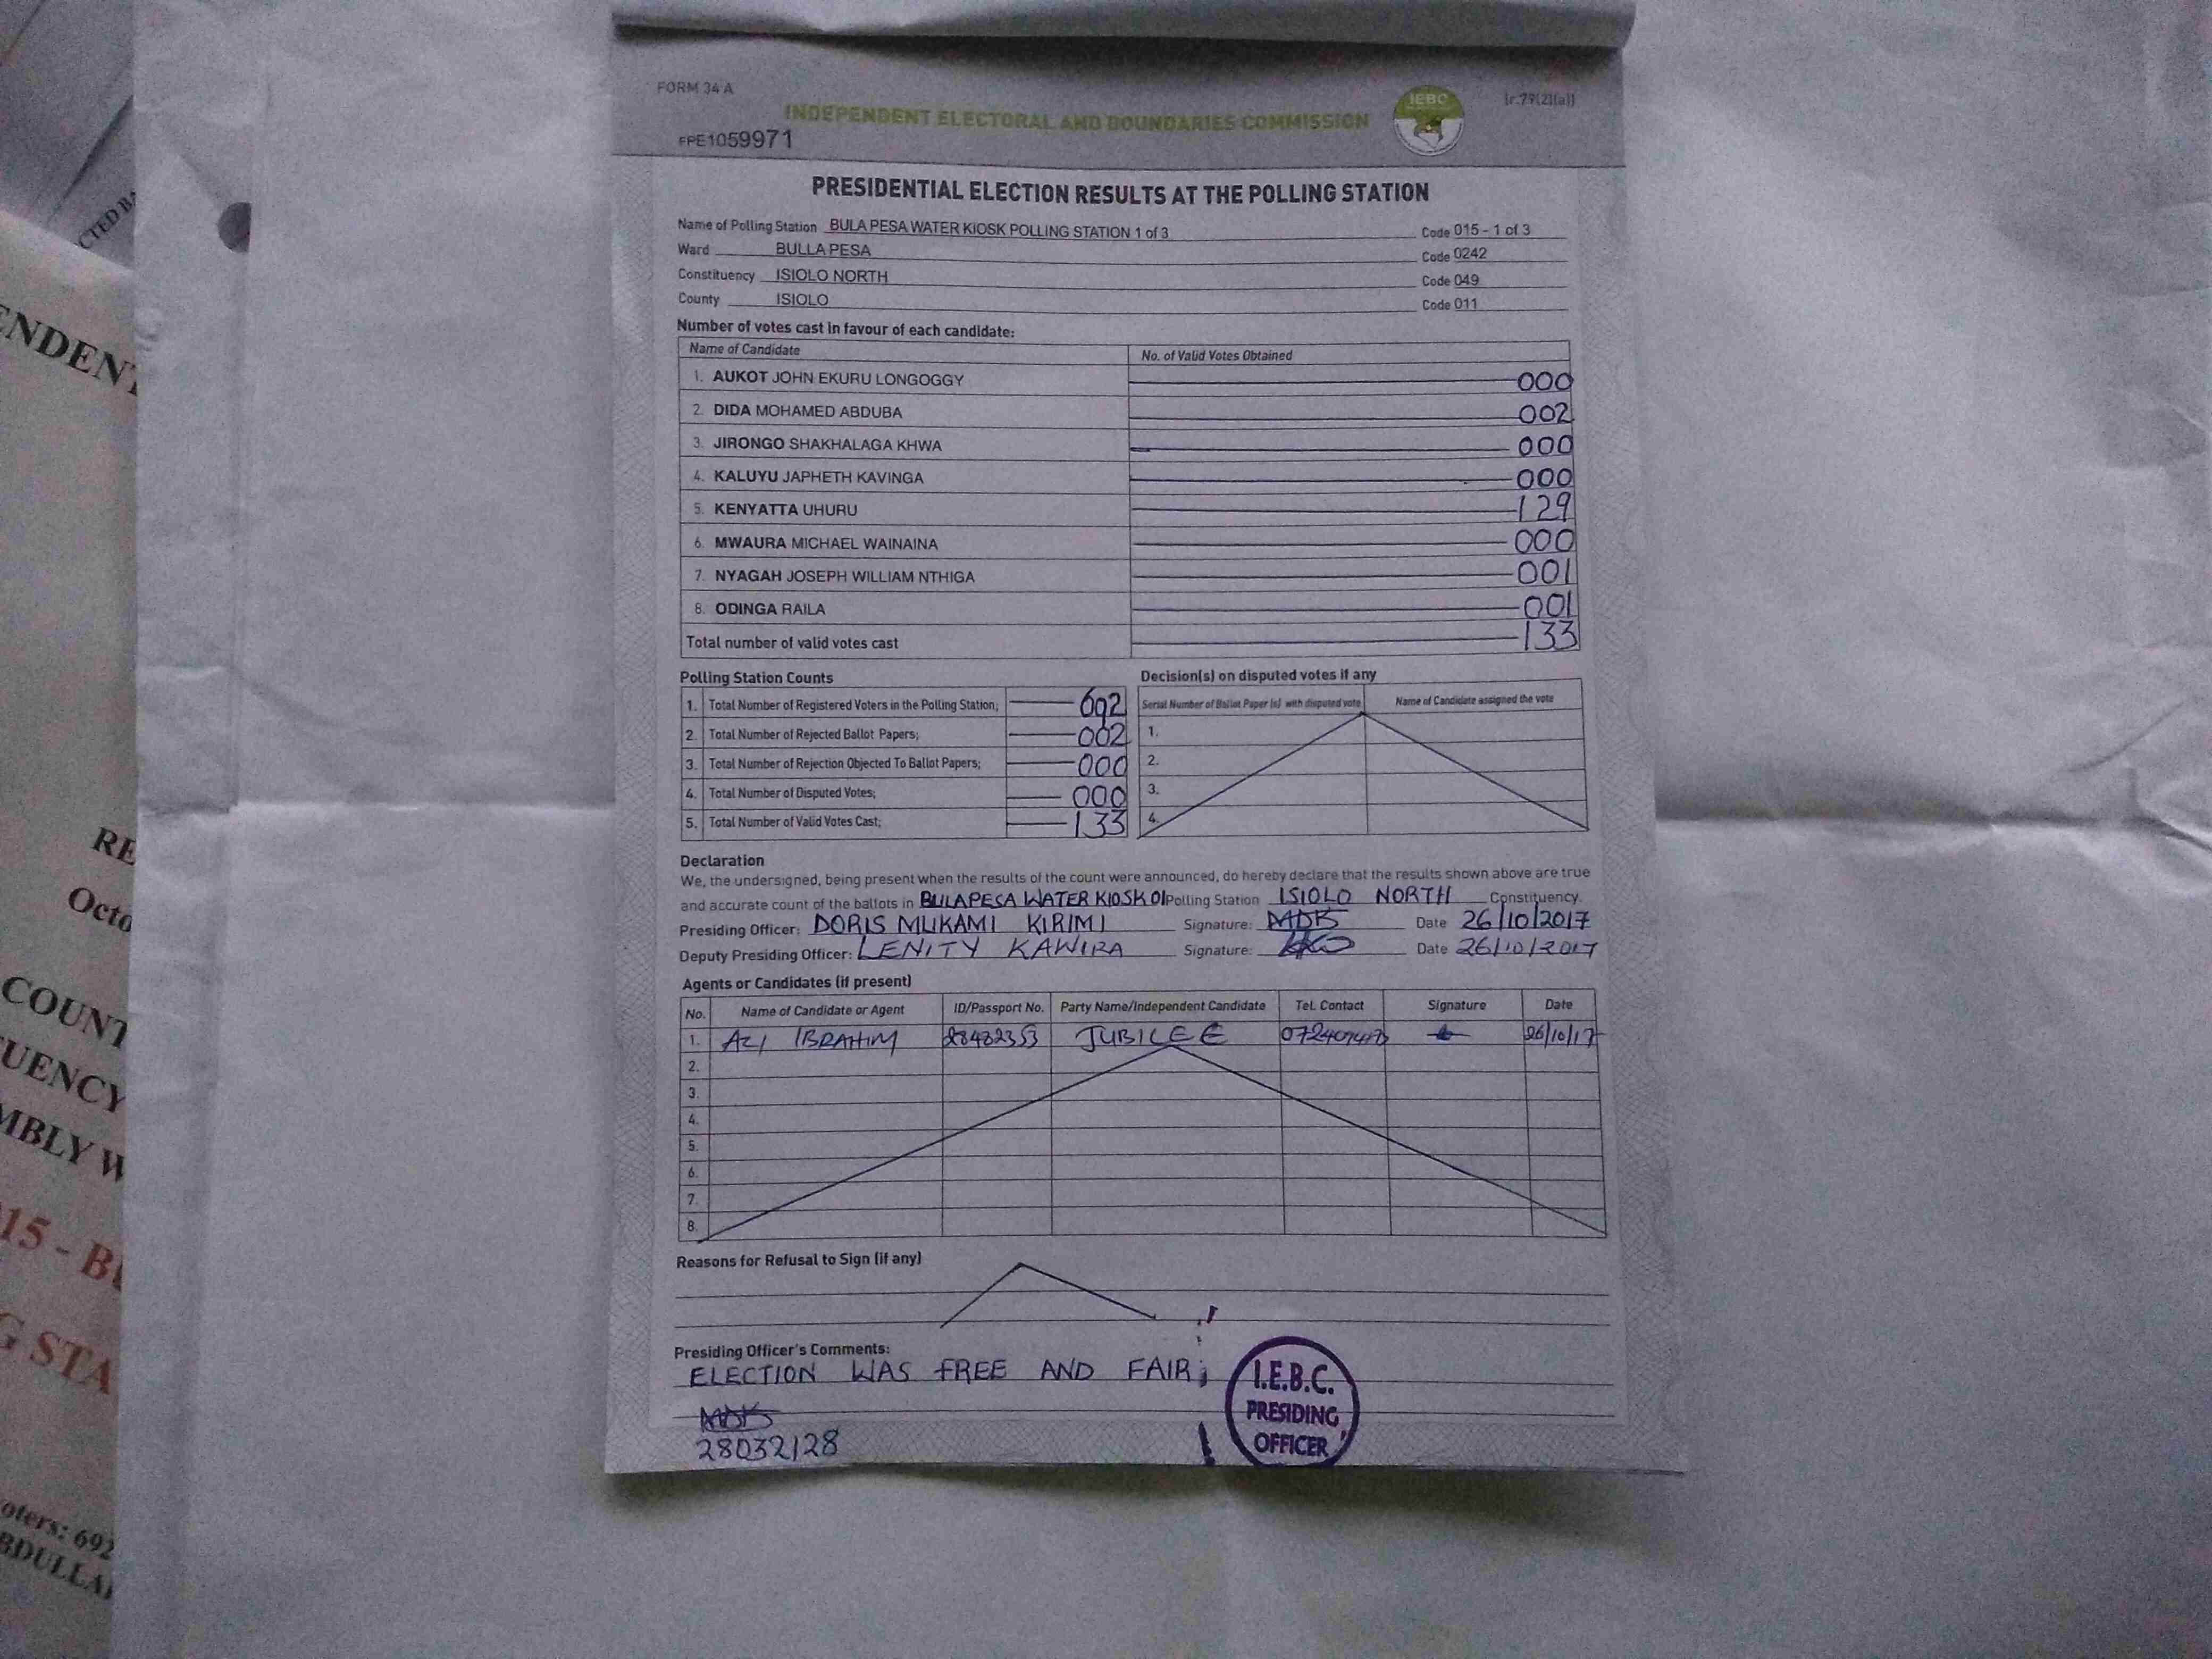 FORM 34 A
[r.79(2)(a)]
INDEPENDENT ELECTORAL AND BOUNDARIES COMMISSION
IEBC
FPE1059971
PRESIDENTIAL ELECTION RESULTS AT THE POLLING STATION
Name of Polling Station BULA PESA WATER KIOSK POLLING STATION 1 of 3 Code 015 - 1 of 3
Ward BULLA PESA Code 0242
Constituency ISIOLO NORTH Code 049
County ISIOLO Code 011
Number of votes cast in favour of each candidate:
Name of Candidate No. of Valid Votes Obtained
1. AUKOT JOHN EKURU LONGOGGY 000
2. DIDA MOHAMED ABDUBA 002
3. JIRONGO SHAKHALAGA KHWA 000
4. KALUYU JAPHETH KAVINGA 000
5. KENYATTA UHURU 129
6. MWAURA MICHAEL WAINAINA 000
7. NYAGAH JOSEPH WILLIAM NTHIGA 001
8. ODINGA RAILA 001
Total number of valid votes cast 133
Polling Station Counts
1. Total Number of Registered Voters in the Polling Station; 692
2. Total Number of Rejected Ballot Papers; 002
3. Total Number of Rejection Objected To Ballot Papers; 000
4. Total Number of Disputed Votes; 000
5. Total Number of Valid Votes Cast; 133
Decision(s) on disputed votes if any
Serial Number of Ballot Paper (s) with disputed vote Name of Candidate assigned the vote
1.
2.
3.
4.
Declaration
We, the undersigned, being present when the results of the count were announced, do hereby declare that the results shown above are true
and accurate count of the ballots in BULAPESA WATER KIOSK 01 Polling Station ISIOLO NORTH Constituency.
Presiding Officer: DORIS MUKAMI KIRIMI Signature: MDK Date 26/10/2017
Deputy Presiding Officer: LENITY KAWIRA Signature: Date 26/10/2017
Agents or Candidates (if present)
No. Name of Candidate or Agent ID/Passport No. Party Name/Independent Candidate Tel. Contact Signature Date
1. ALI IBRAHIM 28482353 JUBILEE 26/10/17
2.
3.
4.
5.
6.
7.
8.
Reasons for Refusal to Sign (if any)
Presiding Officer's Comments:
ELECTION WAS FREE AND FAIR;
MDK
28032128
I.E.B.C.
PRESIDING
OFFICER
CTED B
ENDENT
RE
Octo
COUNT
UENCY
MBLY W
15 - BU
G STA
oters: 692
BDULLA